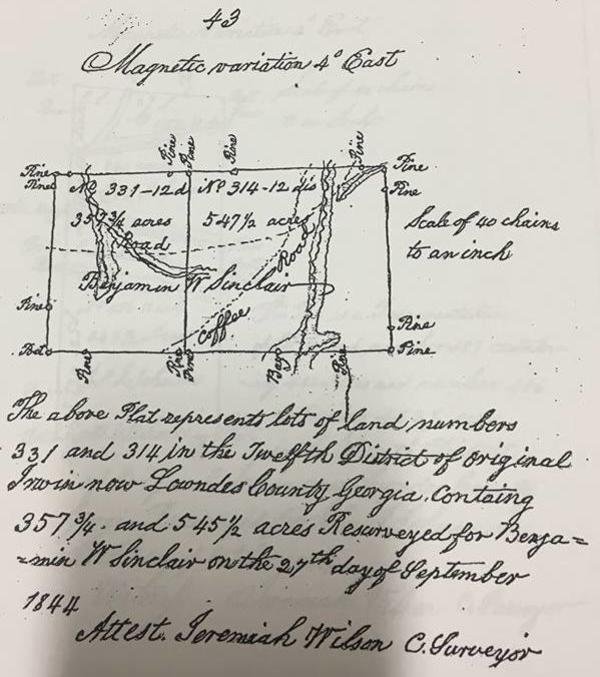 43
Magnetic variation 4° East
Pine Pine Pine Pine
Pine Pine
Pine Pine
No 331-12 d No 314-12 dis
357 3/4 acres 547 1/2 acres
Road Road
Scale of 40 chains
to an inch
Benjamin W Sinclair
Pine
Coffee
Pine
Pine
Pine Pine Bay Pine
The above Plat represents lots of land numbers
331 and 314 in the Twelfth District of original
Irwin now Lowndes County Georgia. Containg
357 3/4. and 545 1/2 acres Resurveyed for Benja=
=min W Sinclair on the 27th day of September
1844
Attest. Jeremiah Wilson C. Surveyor